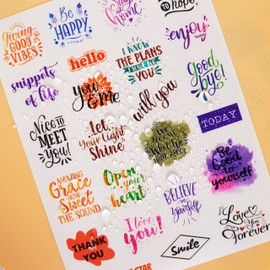 Giving
GOOD
VIBES!
Be
HAPPY
to HOPE
enjoy
snippets
of life
hello
I KNOW
THE PLANS
I HAVE FOR
YOU
Good
bye!
you
& Me
will you
Nice to
MEET
YOU!
Let
Your Light
Shine
TODAY
AMAZING
Grace
HOW
Sweet
THE SOUND
Open
your
heart
BELIEVE
in
Yourself
Be
Good to
yourself
THANK
YOU
I love
you!
Smile
I
Love
You
Forever
STAR